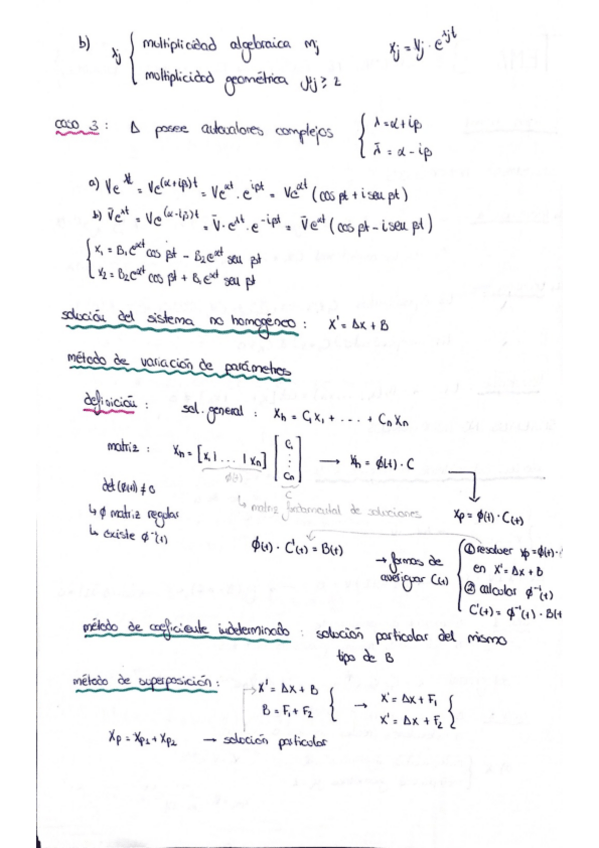 b) λj { multiplicidad algebraica mj
multiplicidad geométrica μj ≥ 2
xj = vj · e^λjt
caso 3: Δ posee autovalores complejos { λ = α + iβ
λ̄ = α - iβ
a) Ve^λt = Ve^(α+iβ)t = Ve^αt · e^iβt = Ve^αt (cos βt + i seu βt)
b) V̄e^λt = V̄e^(α-iβ)t = V̄ · e^αt · e^-iβt = V̄e^αt (cos βt - i seu βt)
{ x1 = B1e^αt cos βt - B2e^αt seu βt
x2 = B2e^αt cos βt + B1e^αt seu βt
solución del sistema no homogéneo: X' = Δx + B
método de variación de parámetros
definición: sol. general: Xh = C1X1 + .... + CnXn
matriz: Xh = [x1 | ... | xn] [C1 ⋮ Cn] → Xh = ϕ(t) · C
ϕ(t)
C
det (ϕ(t)) ≠ 0
↳ matriz fundamental de soluciones
Xp = ϕ(t) · C(t)
↳ ϕ matriz regular
↳ existe ϕ⁻¹(t)
ϕ(t) · C'(t) = B(t)
→ formas de averiguar C(t)
① resolver xp = ϕ(t) ·
en X' = Δx + B
② calcular ϕ⁻¹(t)
C'(t) = ϕ⁻¹(t) · B(t
método de coeficiente indeterminado: solución particular del mismo
tipo de B
método de superposición: X' = Δx + B
B = F1 + F2 } → X' = Δx + F1
X' = Δx + F2 {
Xp = Xp1 + Xp2 → solución particular